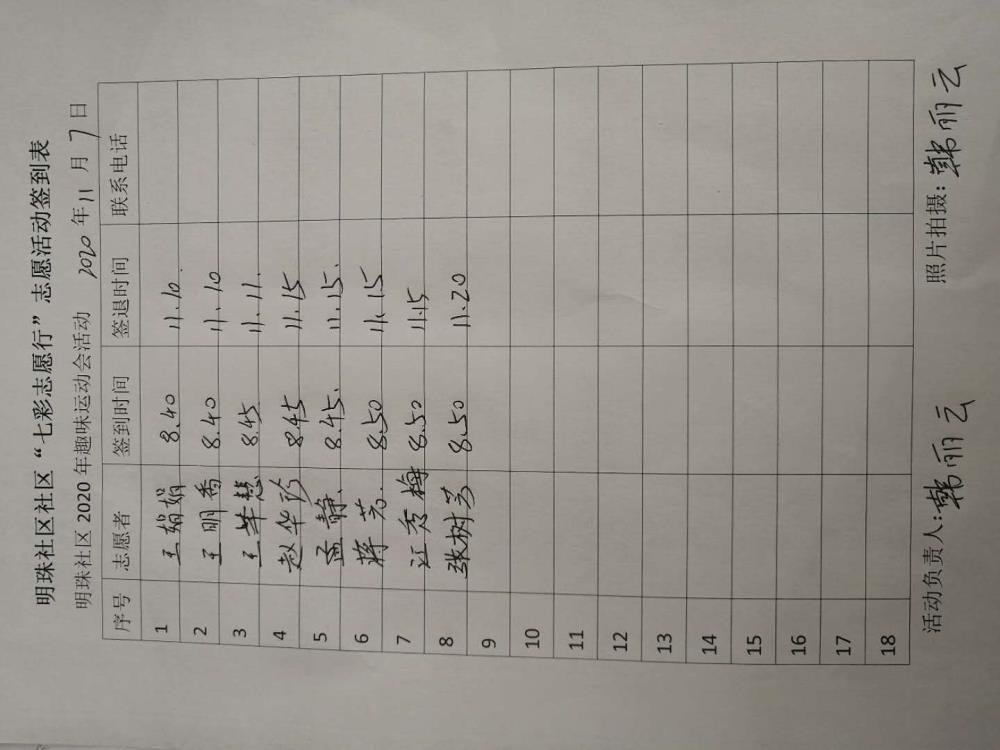 明珠社区社区“七彩志愿行”志愿活动签到表
明珠社区2020年趣味运动会活动 2020年11月7日
序号 志愿者 签到时间 签退时间 联系电话
1 王娟娟 8.40 11.10
2 王明秀 8.40 11.10
3 王华慧 8.45 11.11.
4 赵华珍 8.45 11.15
5 孟静 8.45. 11.15.
6 蒋芳. 8.50 11.15
7 江秀梅 8.50 11.15
8 张树芳 8.50 11.20
9
10
11
12
13
14
15
16
17
18
活动负责人:韩丽云 照片拍摄:韩丽云